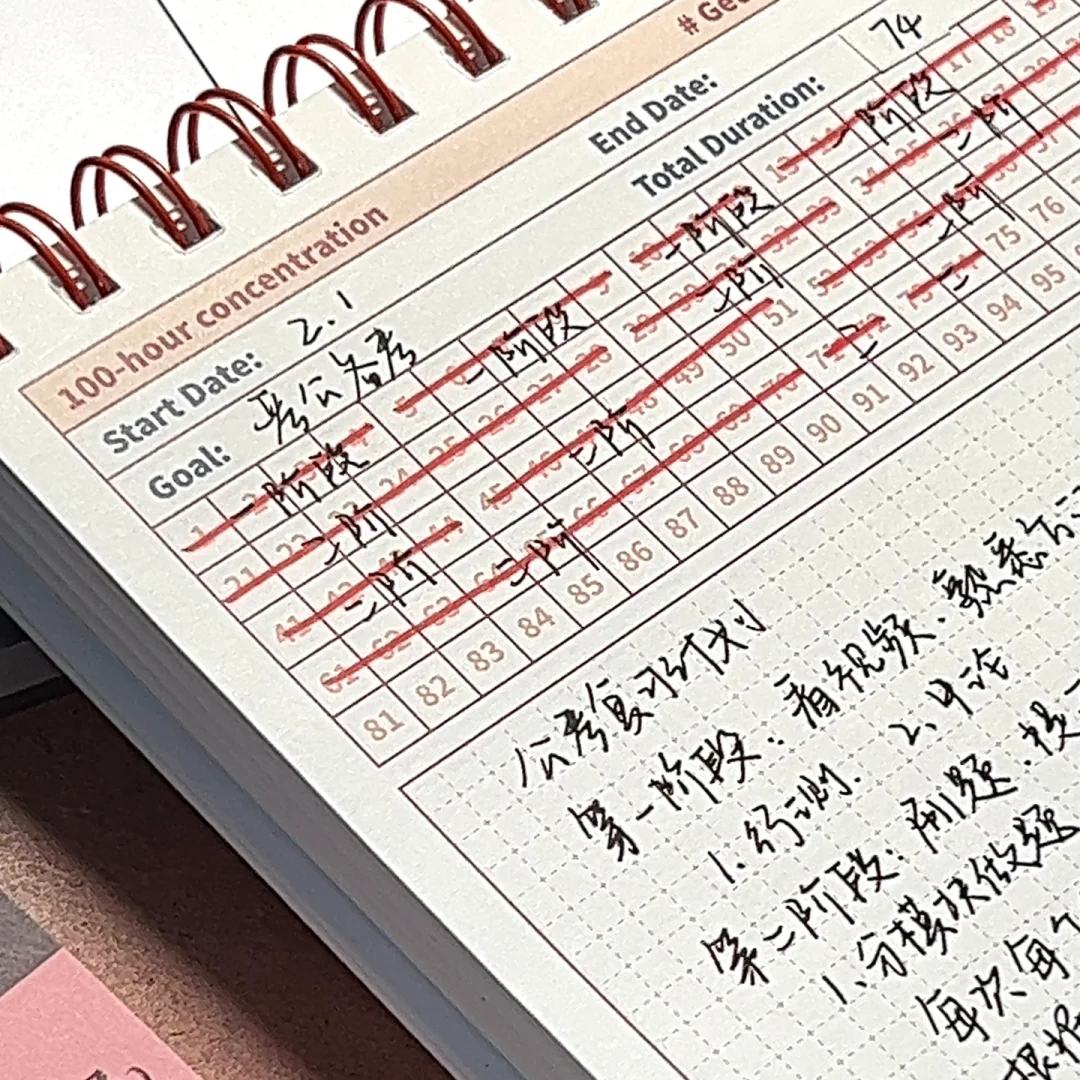 100-hour concentration #
Start Date: 2.1 End Date:
Goal: 考公备考 Total Duration: 74
1 2 一阶段 4 5 6 一阶段 9 10 一阶段 13 14 一阶段 17 18 19
21 22 二阶 24 25 26 27 28 29 30 二阶 32 33 34 35 36 二阶
41 42 二阶 44 45 46 二阶 48 49 50 51 52 53 54 二阶 56 57
61 62 63 64 二阶 66 67 68 69 70 71 72 二 73 74 二 75 76
81 82 83 84 85 86 87 88 89 90 91 92 93 94 95
公考复习计划
第一阶段：看视频、熟悉方
1.行测. 2.申论
第二阶段：刷题、
1.分模块做题
每次每个
根据